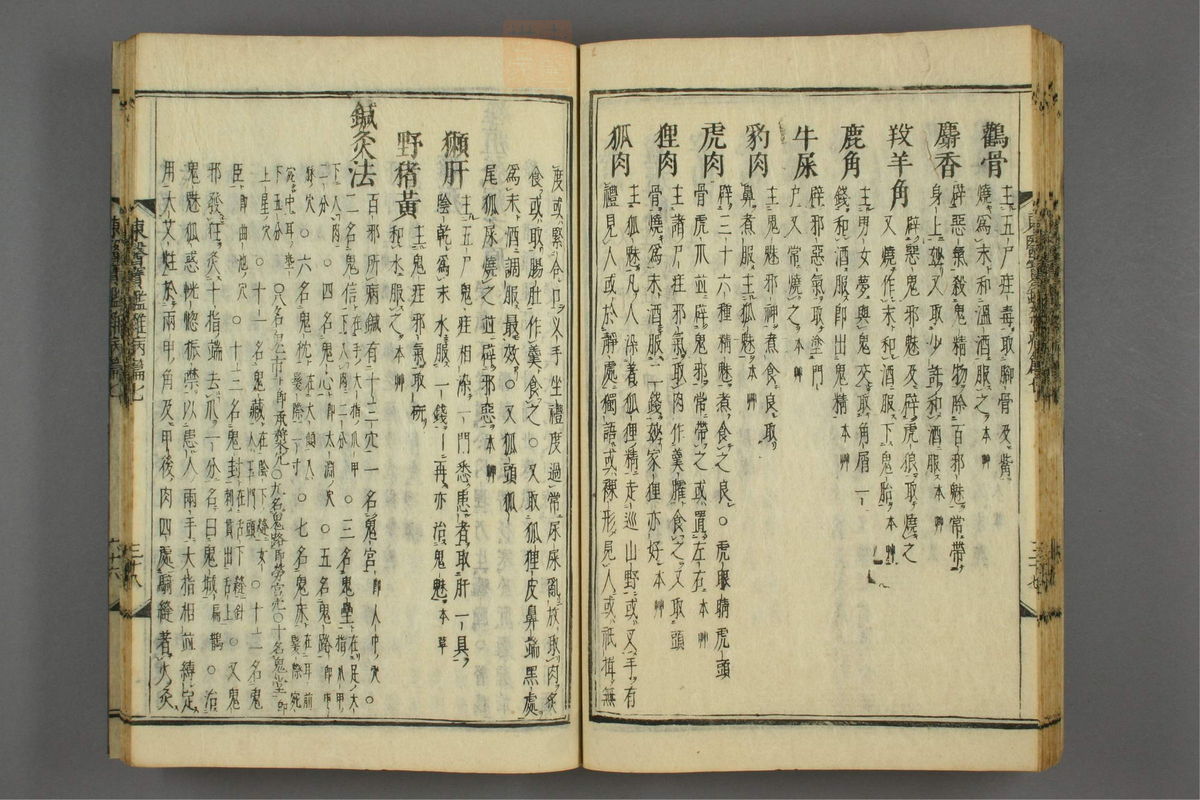 鸛骨
主五尸疰毒取脚骨及觜
燒爲末和溫酒服之本艸
麝香
辟惡氣殺鬼精物除百邪魅常帶
身上玅又取少許和酒服本艸
羖羊角
辟惡鬼邪魅及辟虎狼取燒之
又燒作末和酒服下鬼胎本艸
鹿角
主男女夢與鬼交取角屑一
錢和酒服卽出鬼精本艸
牛屎
辟邪惡氣取塗門
戶又常燒之本艸
豹肉
主鬼魅邪神煮食良取
鼻煮服主狐魅本艸
虎肉
辟三十六種精魅煮食之良○虎眼睛虎頭
骨虎爪並辟鬼邪常帶之或置左右本艸
狸肉
主諸尸疰邪氣取肉作羹臛食之又取頭
骨燒爲末酒服二錢玅家狸亦好本艸
狐肉
主狐魅凡人染着狐狸精走巡山野或叉手有
禮見人或於靜處獨語或裸形見人或祇揖無
度或緊合口叉手坐禮度過常尿屎亂放取肉炙
食或取腸肚作羹食之○又取狐狸皮鼻端黑處
爲末酒調服最效○又狐頭狐
尾狐屎燒之並辟邪惡本艸
獺肝
主五尸鬼疰相染一門悉患者取肝一具
陰乾爲末水服一錢日再亦治鬼魅本草
野猪黃
主鬼疰邪氣取一枚
和水服之本艸
鍼灸法
百邪所病鍼有十三穴一名鬼宮卽人中穴○
二名鬼信在手大指爪甲
下入肉三分○三名鬼壘在足大指爪甲
下入肉二分○四名鬼心卽太淵穴○五名鬼路卽申
脉穴○六名鬼枕在大顀入
髮際一寸○七名鬼床在耳前髮際宛
宛中耳垂
下五分○八名鬼市卽承漿穴○九名鬼路卽勞宮穴○十名鬼堂卽
上星穴○十一名鬼藏在陰下縫女
人玉門頭○十二名鬼
臣卽曲池穴○十三名鬼封在舌下縫針
刺貫出舌上○又鬼
邪發狂灸十指端去爪一分名曰鬼城扁鵲○治
鬼魅狐惑恍惚振噤以患人兩手大指相並縛定
用大艾炷於兩甲角及甲後肉四處騎縫着火灸
東醫寶鑑雜病篇七